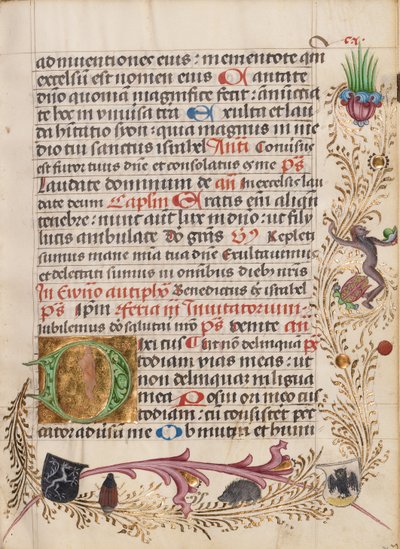 cx.
ad inuentiones eius : mementote qm̄
excelsū est nomen eius Cantate
dn̄o quoniam magnifice fecit : annūcia
te hoc in vniuersa tr̄a Exulta et lau
da habitatio syon : quia magnus in me
dio tui sanctus israhel An̄ti Conuersus
est furor tuus dn̄e et consolatus es me ps
Laudate dominum de an̄ In excelsis lau
date deum Caplm̄ Eratis em̄ aliqn̄
tenebre : nunc aūt lux in dn̄o : ut filij
lucis ambulate Do grās Vs Repleti
sumus mane mīa tua dn̄e Exultauimus
et delectati sumus in omnibus diebꝫ nr̄is
In Ewn̄o antiph̄ Benedictus ds̄ israhel
ps Ipm̄ feria iij Inuitatorium
Jubilemus dō salutari nr̄o ps venite an̄
Dixi cus Ut nō delinquā ps
todiam vias meas : ut
non delinquā in ligua
mea Posui ori meo cus
todiam : cū consisteret pec
cator aduersū me Obmutui et humi